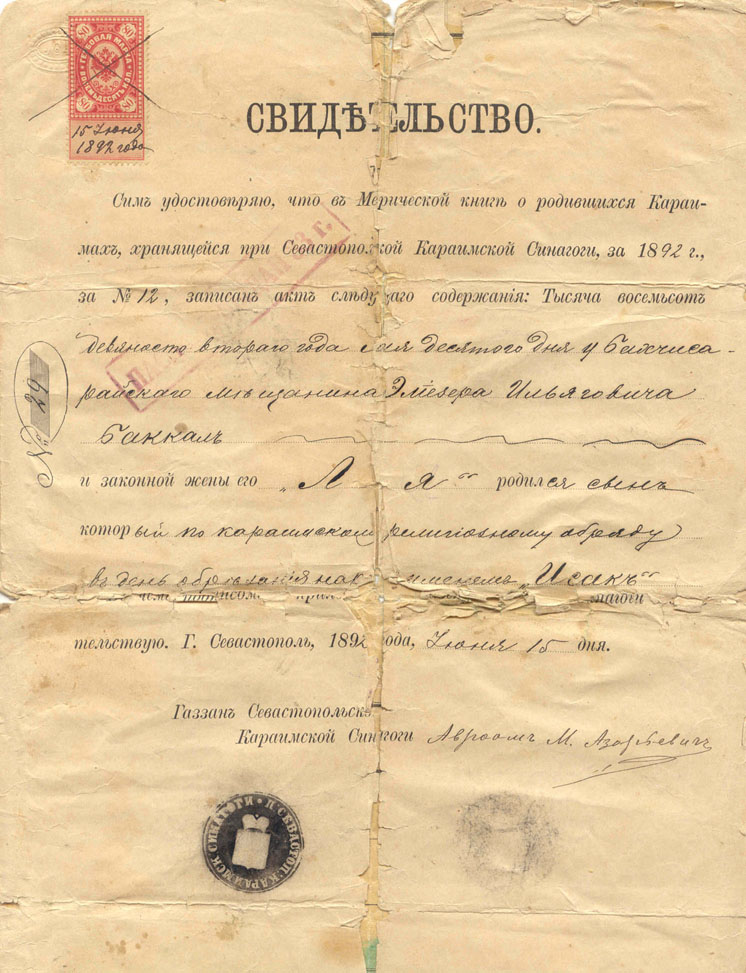 80 ГЕРБОВАЯ МАРКА 80
ВОСЕМЬДЕСЯТЪ КОП.
80 80
15 Іюня
1892 года
СВИДѢТЕЛЬСТВО.
Симъ удостовѣряю, что въ Мерической книгѣ о родившихся Караи-
махъ, хранящейся при Севастопо кой Караимской Синагоги, за 1892 г.,
за № 12, записан актъ слѣду аго содержанія: Тысяча восемьсотъ
девяносто втораго года мая десятаго дня у Бахчиса-
райскаго мѣщанина Ильяговича
Баккалъ
№ 29
и законной жены его „Лія“ родился сынъ
который по караимском религіозному обряду
въ день обрѣзанія нак именемъ „Исакъ“
чем подписом при нагоги
тельствую. Г. Севастополь, 1892 года, Іюня 15 дня.
Газзанъ Севастопольско
Караимской Синагоги Авроомъ М.
СЕВАСТОП. КАРАИМСК. СИНАГОГИ